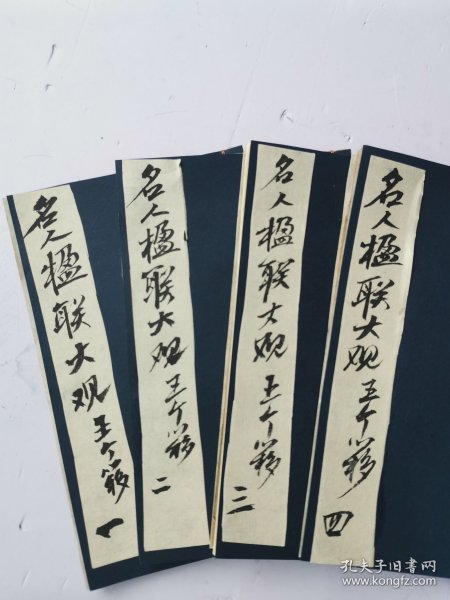 名人楹联大观 王个簃 一
名人楹联大观 王个簃 二
名人楹联大观 王个簃 三
名人楹联大观 王个簃 四
孔夫子旧书网
www.kongfz.com